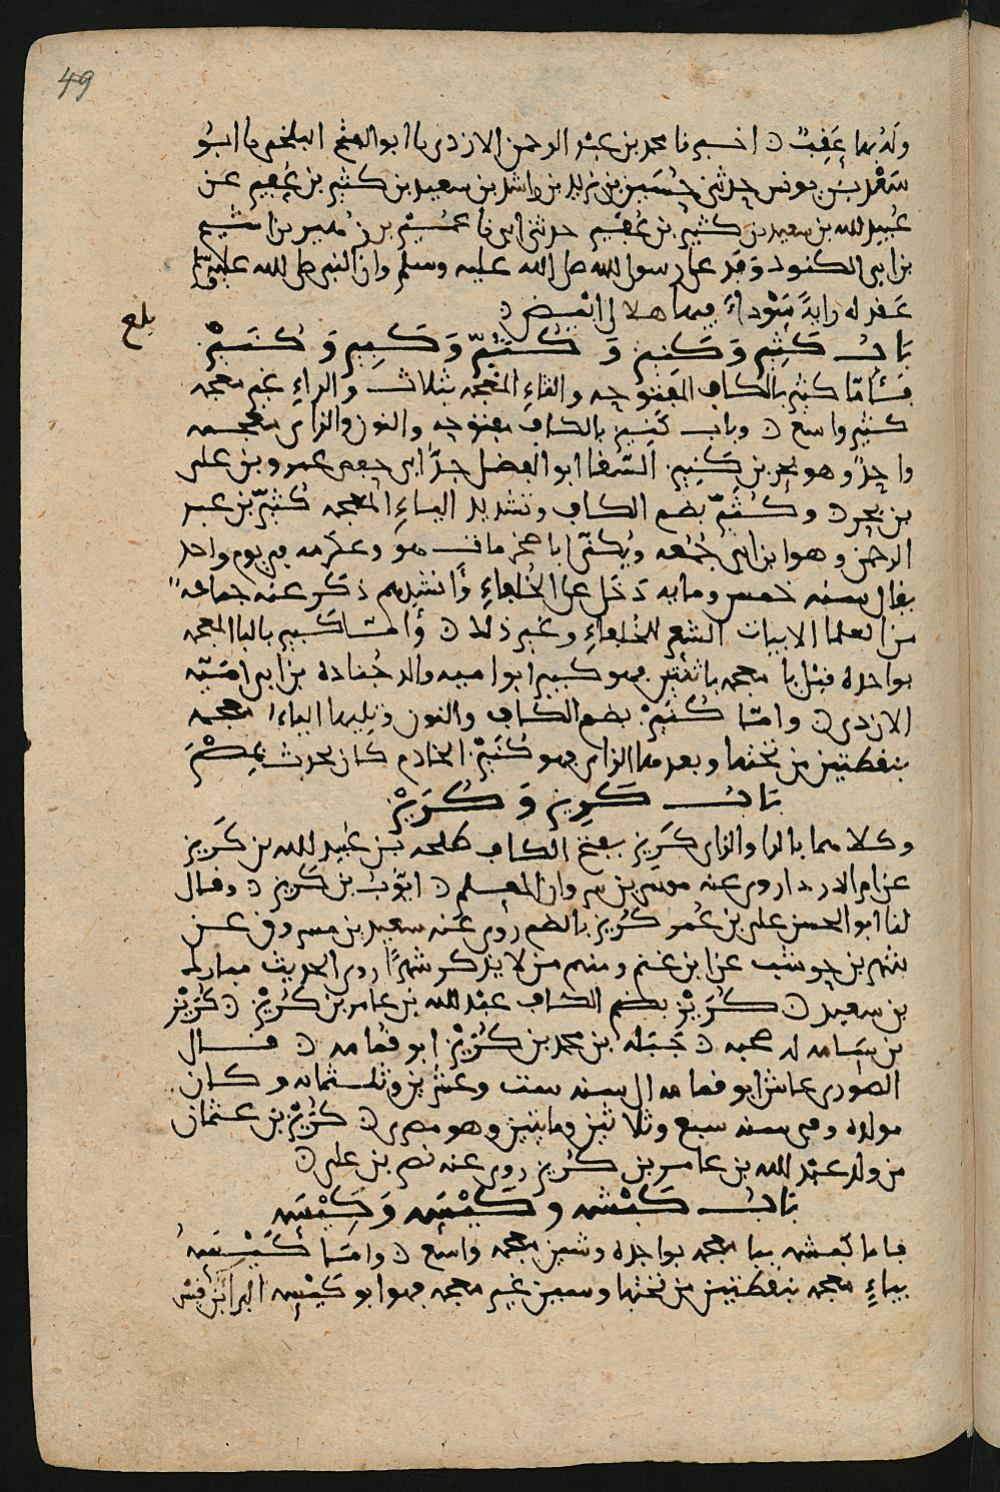 49
وله بها عقب ن اخبرنا محمد بن عبد الرحمن الازدى نا ابو الفتح البلخى نا ابو
سعد بن يونس حدثنى حسين بن زيد بن راشد بن سعيد بن كثير بن عفير عن
عبيد الله بن سعيد بن كثير بن عفير حدثنى ابى نا
بن ابى الكنود وفد على رسول الله صلى الله عليه وسلم وان النبى صلى الله عليه وسلم
عقد له راية سوداء فيها هلال ابيض ن
بلغ
باب كَثِير وَكَنِيز وَ كُثَيِّر وَ كَبِير وَ كُنَيْز
فأمّا كثير بالكاف المفتوحه والثاء المعجمه بثلاث والراء غير معجمه
كثير واسع ن وباب كَنِيز بالكاف مفتوحه والنون والزاى معجمه
واحدٌ وهو بحر بن كَنِيز السّقا ابو الفضل جدّ ابى حفص عمرو بن على
بن بحر ن وكُثَيّر بضم الكاف وتشديد الياء المعجمه كُثيّر بن عبد
الرحمن وهو ابن ابى جُمعه ويُكنّى ابا صخر مات هو وعكرمه فى يوم واحد
يقال سنه خمس ومايه دَخَل على الخُلفاءِ وأنشدهم ذكر عنه جماعه
من العلما الابيات الشعر للخلفاءِ وغير ذلك ن وأمّا كَبير بالبا المعجمه
بواحده قبل يا معجمه باثنتين فهو كبير ابو اميه والد جُناده بن ابى اميّه
الازدى ن وامّا كُنَيْز بضم الكاف والنون وتليها الياء معجمه
بنقطتين من تحتها وبعدها الزاى فهو كُنَيْز الخادم كان يحدث بمِصْرَ
بَاب كَرِيز وَ كُرَيْز
وكلاهما بالرا والزاى كَرِيز بفتح الكاف طلحه بن عُبيد الله بن كَرِيز
عن ام الدردا روى عنه موسى بن سروان المعلم ن ايّوب بن كَرِيز ن وقال
لنا ابو الحسن على بن عُمر كُرَيز بالضم روى عنه سعيد بن مسروق عن
شهر بن حوشب عن ابن غنم ومنهم من لا يذكر شهرًا روى الحديث مبارك
بن سعيد ن كُرَيْز بضم الكاف عبد الله بن عامر بن كُرَيْز ن كُرَيْز
بن سَامه له صحبه ن جَبَله بن محمد بن كُرَيْز ابو قمامه ن قال
الصورى عاش ابو قمامه الى سنه ست وعشرين وثلثمايه وكان
مولده فى سنه سبع وثلاثين ومايتين وهو مصرى ن كُرَيْز بن عثمان
من ولد عبد الله بن عامر بن كُرَيز روى عنه نصر بن على ن
بَابُ كَبْشَه و كَيْسَه وَ كَيِّسَه
فاما كبشه ببا معجمه بواحده وشين معجمه واسع ن وامّا كَيِّسَه
بياءٍ معجمه بنقطتين من تحتها وسين غير معجمه فهو ابو كَيِّسَه البرا بن قيس